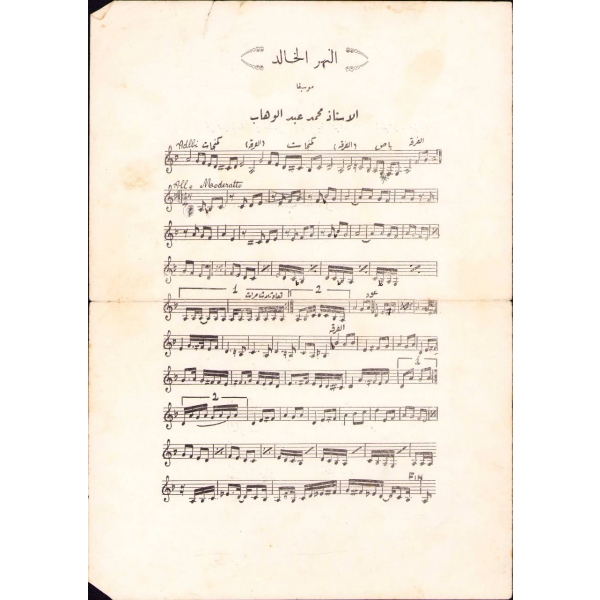 النهر الخالد
موسيقا
الاستاذ محمد عبد الوهاب
Adlib كمنجات (الفرقة) كمنجات (الفرقة) باص الفرقة
All. Moderatto
1 2 عود
الفرقة
1
2
FIN